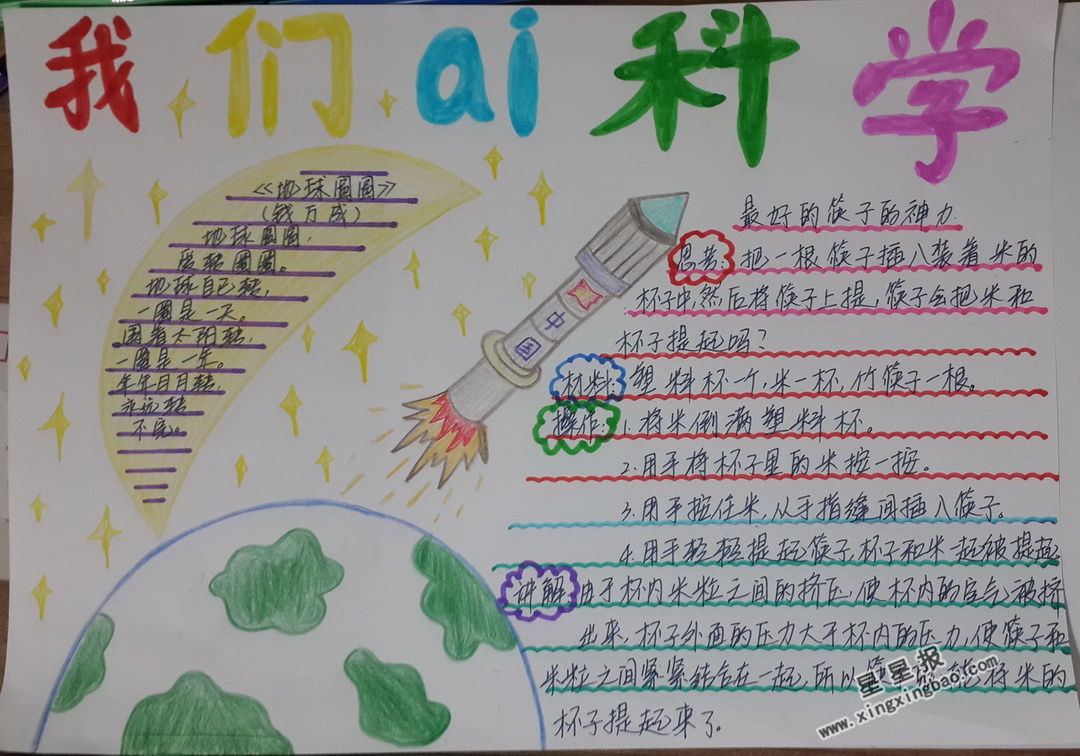 我们ai科学
《地球圆圆》
(钱万成)
地球圆圆，
爱转圈圈。
地球自己转，
一圈是一天。
围着太阳转，
一圈是一年。
年年月月转，
永远转
不完。
中国
最好的筷子的神力
思考：把一根筷子插入装着米的
杯子中，然后将筷子上提，筷子会把米和
杯子提起吗？
材料：塑料杯一个，米一杯，竹筷子一根。
操作：1.将米倒满塑料杯。
2.用手将杯子里的米按一按。
3.用手按住米，从手指缝间插入筷子。
4.用手轻轻提起筷子，杯子和米一起被提起。
讲解：由于杯内米粒之间的挤压，使杯内的空气被挤
出来，杯子外面的压力大于杯内的压力，使筷子和
米粒之间紧紧结合在一起，所以筷子能将米的
杯子提起来了。
星星报
www.xingxingbao.com